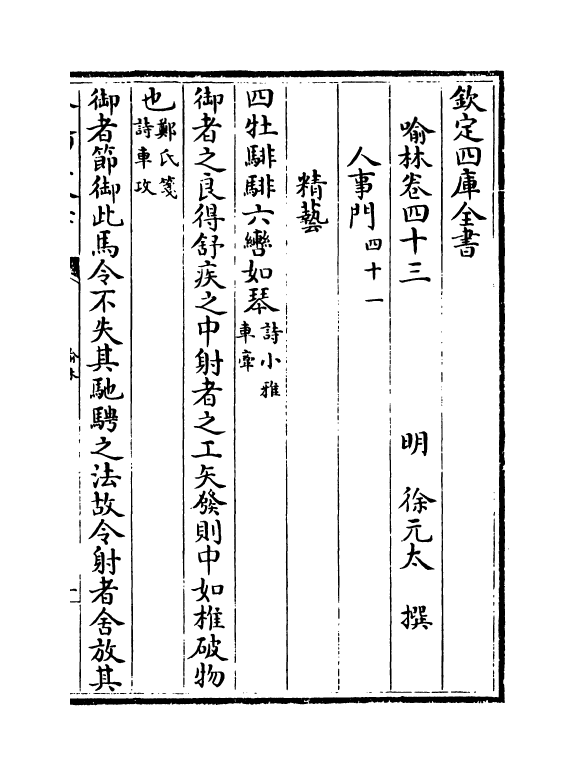 欽定四庫全書
喻林卷四十三
明 徐元太 撰
人事門四十一
精藝
四牡騑騑六轡如琴詩小雅車舝
御者之良得舒疾之中射者之工矢發則中如椎破物
也鄭氏箋詩車攻
御者節御此馬令不失其馳騁之法故令射者舍放其